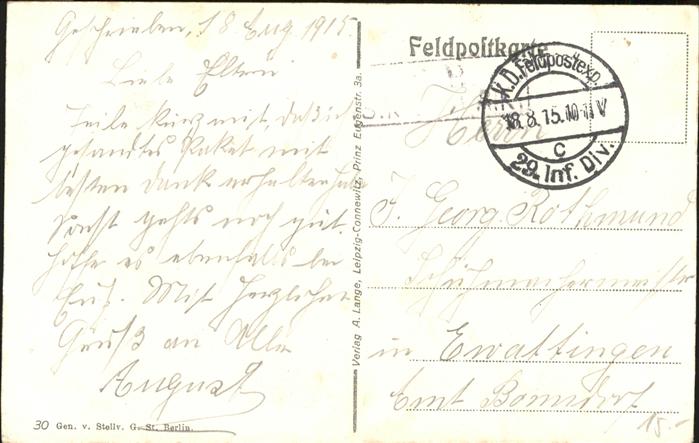 Geschrieben, 18 Aug 1915
Liebe Eltern
Teile kurz mit, daß ich
gesandtes Paket mit
besten Dank erhalten habe
sonst gehts noch gut.
hoffe es ebenfalls bei
Euch. Mit herzlichem
Gruß an Alle
August
30 Gen. v. Stellv. G. St. Berlin.
Verlag A. Lange, Leipzig-Connewitz, Prinz Eugenstr. 3a.
Feldpostkarte
K.D. Feldpostexp.
18.8.15.10-11V
c
29. Inf. Div.
Herrn
J. Georg Rothmund
Schuhmachermeister
in Ewattingen
Amt Bonndorf
15.-